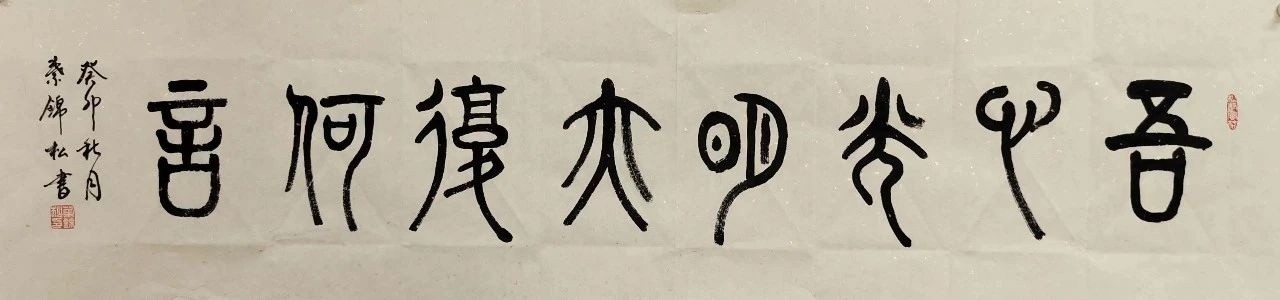 吾心光明亦復何言
癸卯秋月
秦錦松書